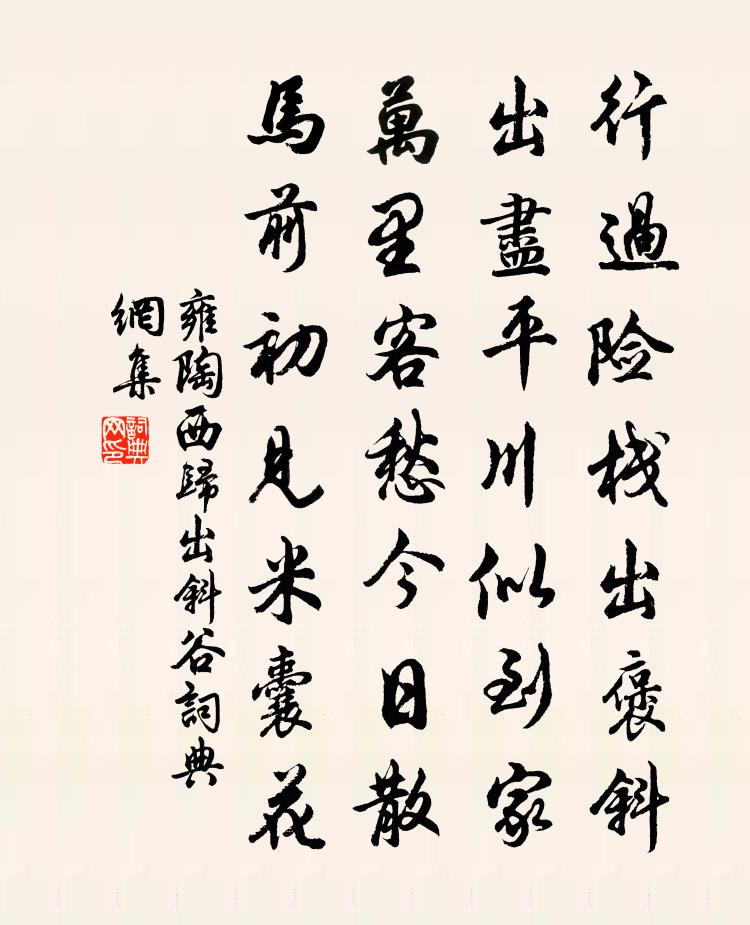 行過险棧出褒斜
出盡平川似到家
萬里客愁今日散
馬前初見米囊花
雍陶西歸出斜谷詞典
網集
詞典
网印